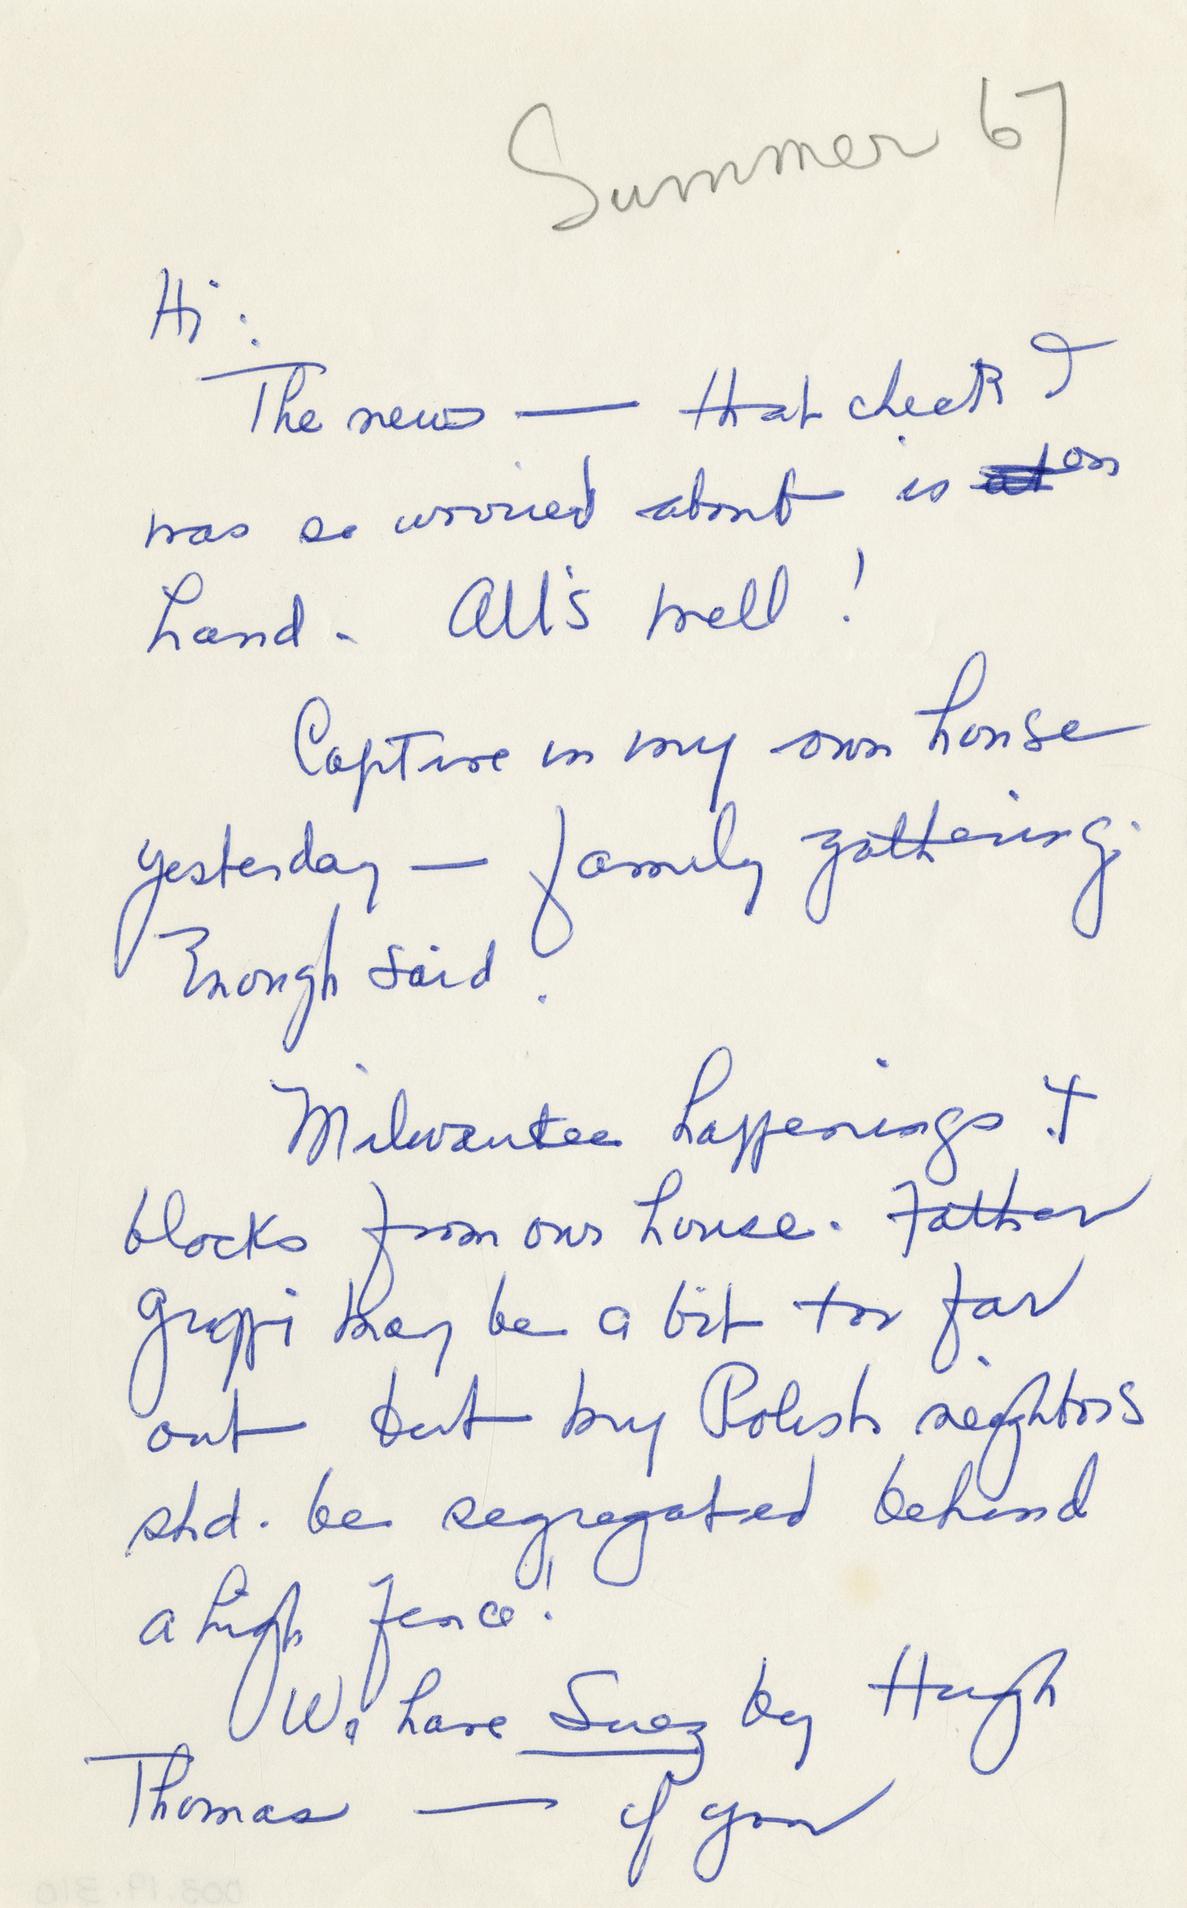 Summer 67
Hi:
The news — that check I
was so worried about is at on
hand. All's well!
Captive in my own house
yesterday — family gathering.
Enough said.
Milwaukee happenings
blocks from our house. Father
Groppi may be a bit too far
out but my Polish neighbors
shd. be segregated behind
a high fence!
We have Suez by Hugh
Thomas — if your